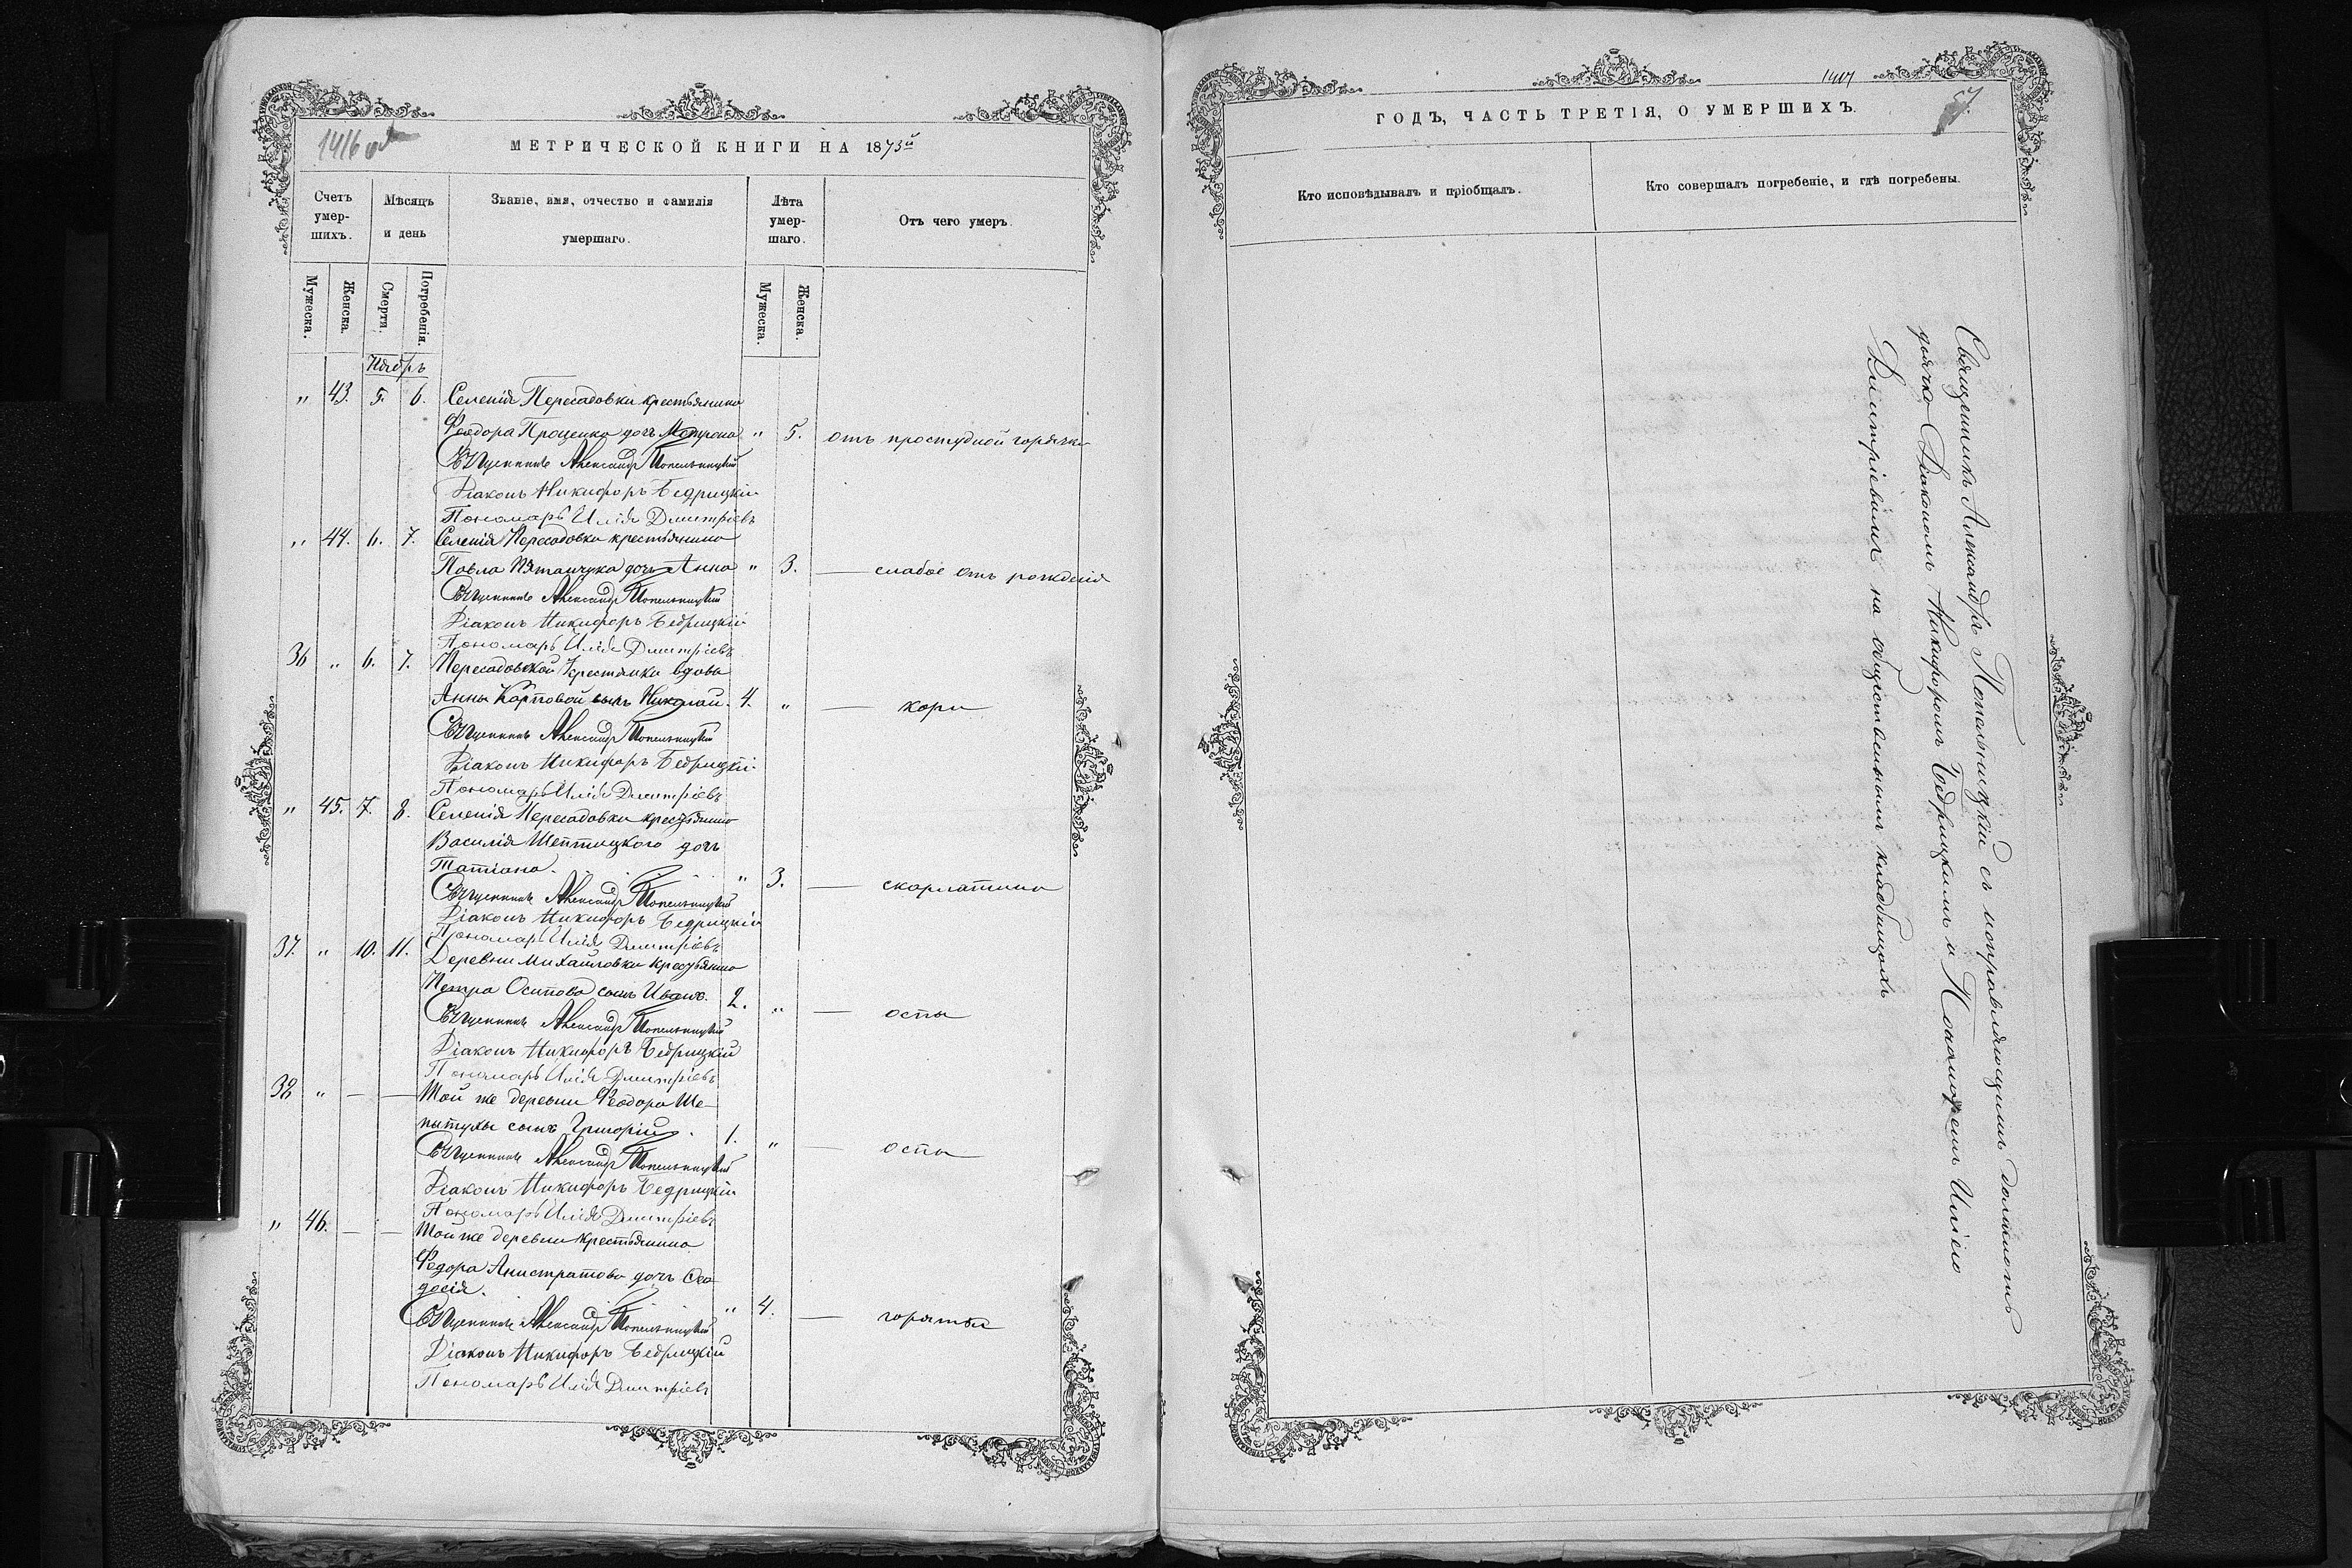 1416 об
МЕТРИЧЕСКОЙ КНИГИ НА 1873й
Счетъ умершихъ.
Мѣсяцъ и день
Званіе, имя, отчество и фамилія умершаго.
Лѣта умершаго.
Отъ чего умеръ.
Мужеска.
Женска.
Смерти.
Погребенія.
Мужеска.
Женска.
Ноябрь
" 43. 5. 6. Селенія Пересадовки крестьянина
Феодора Проценко дочь Мотрона " 5. отъ простудной горячки
Священникъ Александръ Попельницкій
Діаконъ Никифоръ Бедрицкій
Пономарь Илія Дмитріевъ
" 44. 6. 7. Селенія Пересадовки крестьянина
Павла дочь Анна " 3. — слабое отъ рожденія
Священникъ Александръ Попельницкій
Діаконъ Никифоръ Бедрицкій
Пономарь Илія Дмитріевъ
36 " 6. 7. Пересадовской крестьянки вдовы
Анны Карповой сынъ Николай. 4. " — кори
Священникъ Александръ Попельницкій
Діаконъ Никифоръ Бедрицкій
Пономарь Илія Дмитріевъ
" 45. 7. 8. Селенія Пересадовки крестьянина
Василія Шептицкого дочь
Татіана. " 3. — скарлатина
Священникъ Александръ Попельницкій
Діаконъ Никифоръ Бедрицкій
Пономарь Илія Дмитріевъ
37. " 10. 11. Деревни Михайловки крестьянина
Петра Осипова сынъ Иванъ. 2. " — оспы
Священникъ Александръ Попельницкій
Діаконъ Никифоръ Бедрицкій
Пономарь Илія Дмитріевъ
38 " — — Той же деревни Феодора Ше-
пытухи сынъ Григорій. 1. " — оспы
Священникъ Александръ Попельницкій
Діаконъ Никифоръ Бедрицкій
Пономарь Илія Дмитріевъ
" 46. — — Той же деревни крестьянина
Федора Анистратова дочь Fео-
досія. " 4. — горячки
Священникъ Александръ Попельницкій
Діаконъ Никифоръ Бедрицкій
Пономарь Илія Дмитріевъ
1417
57.
ГОДЪ, ЧАСТЬ ТРЕТІЯ, О УМЕРШИХЪ.
Кто исповѣдывалъ и пріобщалъ.
Кто совершалъ погребеніе, и гдѣ погребены.
Священникъ Александръ Попельницкій съ исправляющимъ должность
дьячка Діакономъ Никифоромъ Бедрицкимъ и Пономаремъ Иліею
Димитріевымъ на общественныхъ кладбищахъ